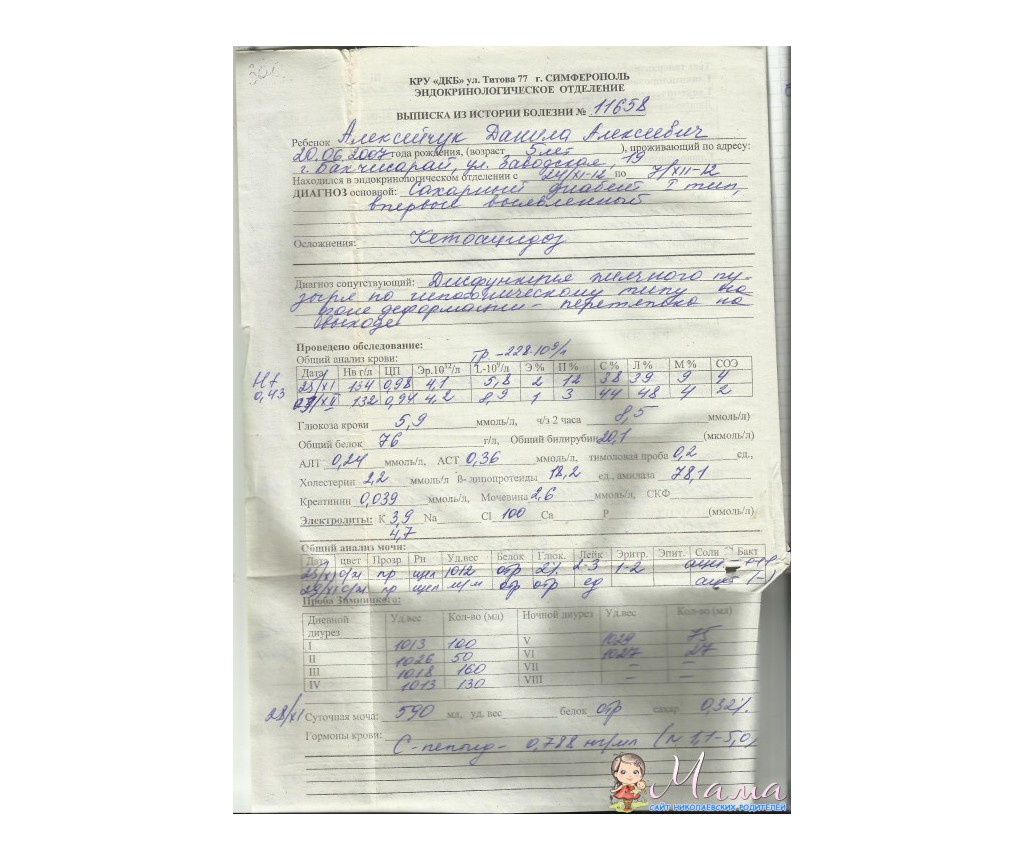 КРУ «ДКБ» ул. Титова 77 г. СИМФЕРОПОЛЬ
ЭНДОКРИНОЛОГИЧЕСКОЕ ОТДЕЛЕНИЕ
ВЫПИСКА ИЗ ИСТОРИИ БОЛЕЗНИ № 11658
Ребенок Алексейчук Данила Алексеевич
20.06.2007 года рождения, (возраст 5 лет), проживающий по адресу:
г. Бахчисарай, ул. Заводская, 19
Находился в эндокринологическом отделении с 24/XI-12 по 7/XII-12
ДИАГНОЗ основной: Сахарный диабет I тип,
впервые выявленный
Осложнения: Кетоацидоз
Диагноз сопутствующий: Дисфункция желчного пу-
зыря по гипотоническому типу на
фоне деформации - перетяжка на
выходе
Проведено обследование:
Общий анализ крови: Тр -228·10⁹/л
Дата Нв г/л ЦП Эр.10¹²/л L-10⁹/л Э % П % С % Л % М % СОЭ
Ht 25/XI 134 0,98 4,1 5,8 2 12 38 39 9 4
0,43 03/XII 132 0,94 4,2 8,9 1 3 44 48 4 2
Глюкоза крови 5,9 ммоль/л, ч/з 2 часа 8,5 ммоль/л)
Общий белок 76 г/л, Общий билирубин 20,1 (мкмоль/л)
АЛТ 0,24 ммоль/л, АСТ 0,36 ммоль/л, тимоловая проба 0,2 ед.,
Холестерин 2,2 ммоль/л β- липопротеиды 12,2 ед., амилаза 78,1
Креатинин 0,039 ммоль/л, Мочевина 2,6 ммоль/л, СКФ
Электролиты: К 3,9 Na Cl 100 Ca P (ммоль/л)
4,7
Общий анализ мочи:
Дата цвет Прозр Рн Уд.вес Белок Глюк. Лейк Эритр. Эпит. Соли Бакт
25/XI с/ж пр щел 1012 отр 2% 2-3 1-2 ацет - +++
29/XI с/ж пр щел м/м отр отр ед ацет (-)
Проба Зимницкого:
Дневной диурез Уд.вес Кол-во (мл) Ночной диурез Уд.вес Кол-во (мл)
I 1013 100 V 1029 75
II 1026 50 VI 1027 27
III 1018 160 VII - -
IV 1013 130 VIII - -
28/XI Суточная моча: 590 мл, уд. вес белок отр сахар 0,32%
Гормоны крови:
С-пептид - 0,788 нг/мл (N 1,1-5,0)
Мама
САЙТ НИКОЛАЕВСКИХ РОДИТЕЛЕЙ